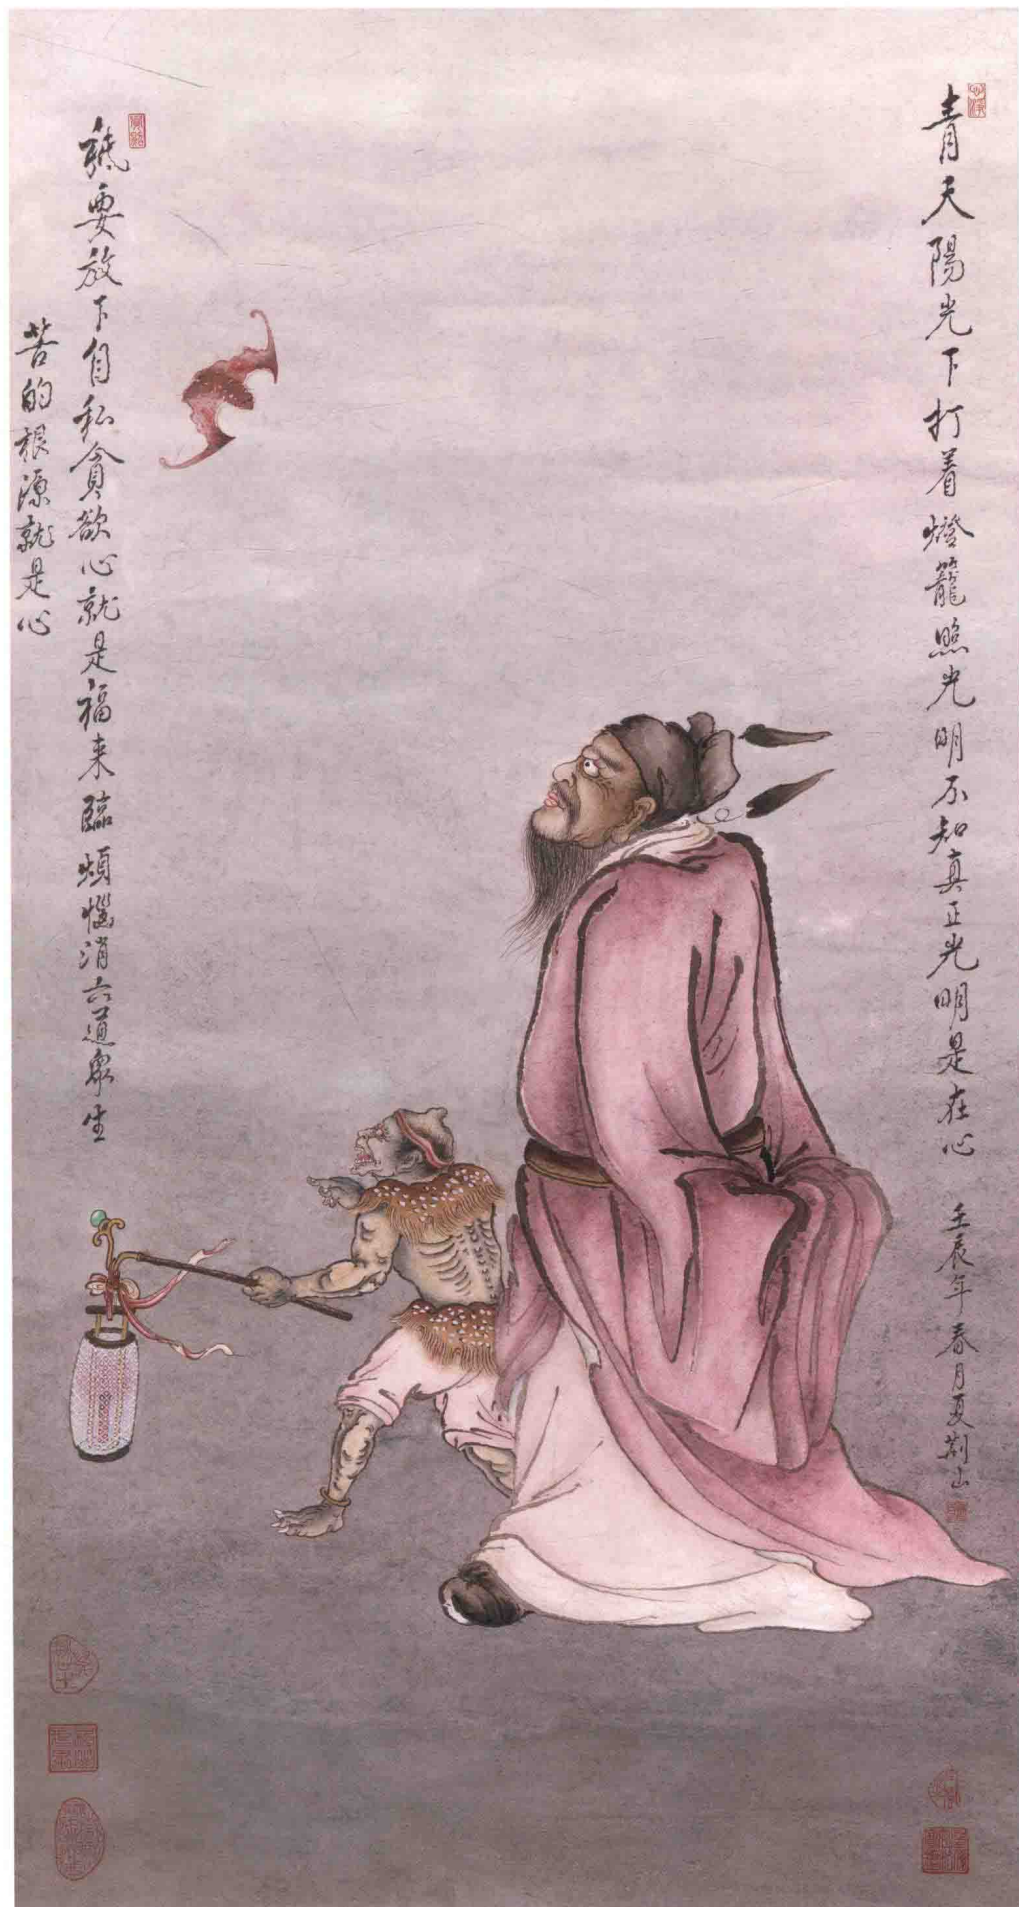 青天陽光下打着燈籠照光明不知真正光明是在心
壬辰年春月夏荊山
祇要放下自私貪欲心就是福来臨煩惱消六道眾生
苦的根源就是心